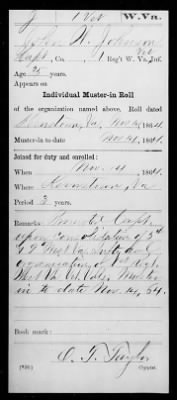 J 1 Vet W. Va.
John W. Johnson
Capt, Co. , Reg't W. Va. Inf.
Age 25 years.
Appears on
Individual Muster-in Roll
of the organization named above. Roll dated
Va, Nov 14, 1864.
Muster-in to date Nov 14, 1864.
Joined for duty and enrolled:
When Nov. 14, 1864.
Where Va
Period 3 years.
Remarks: Capt.
upon consolidation of 5th
& 9 West Va. Inf. and
organization of 1st Regt
West Va. Vet. Vols. Muster
in to date Nov. 14, 64.
Book mark:
O. T. Taylor
Copyist.